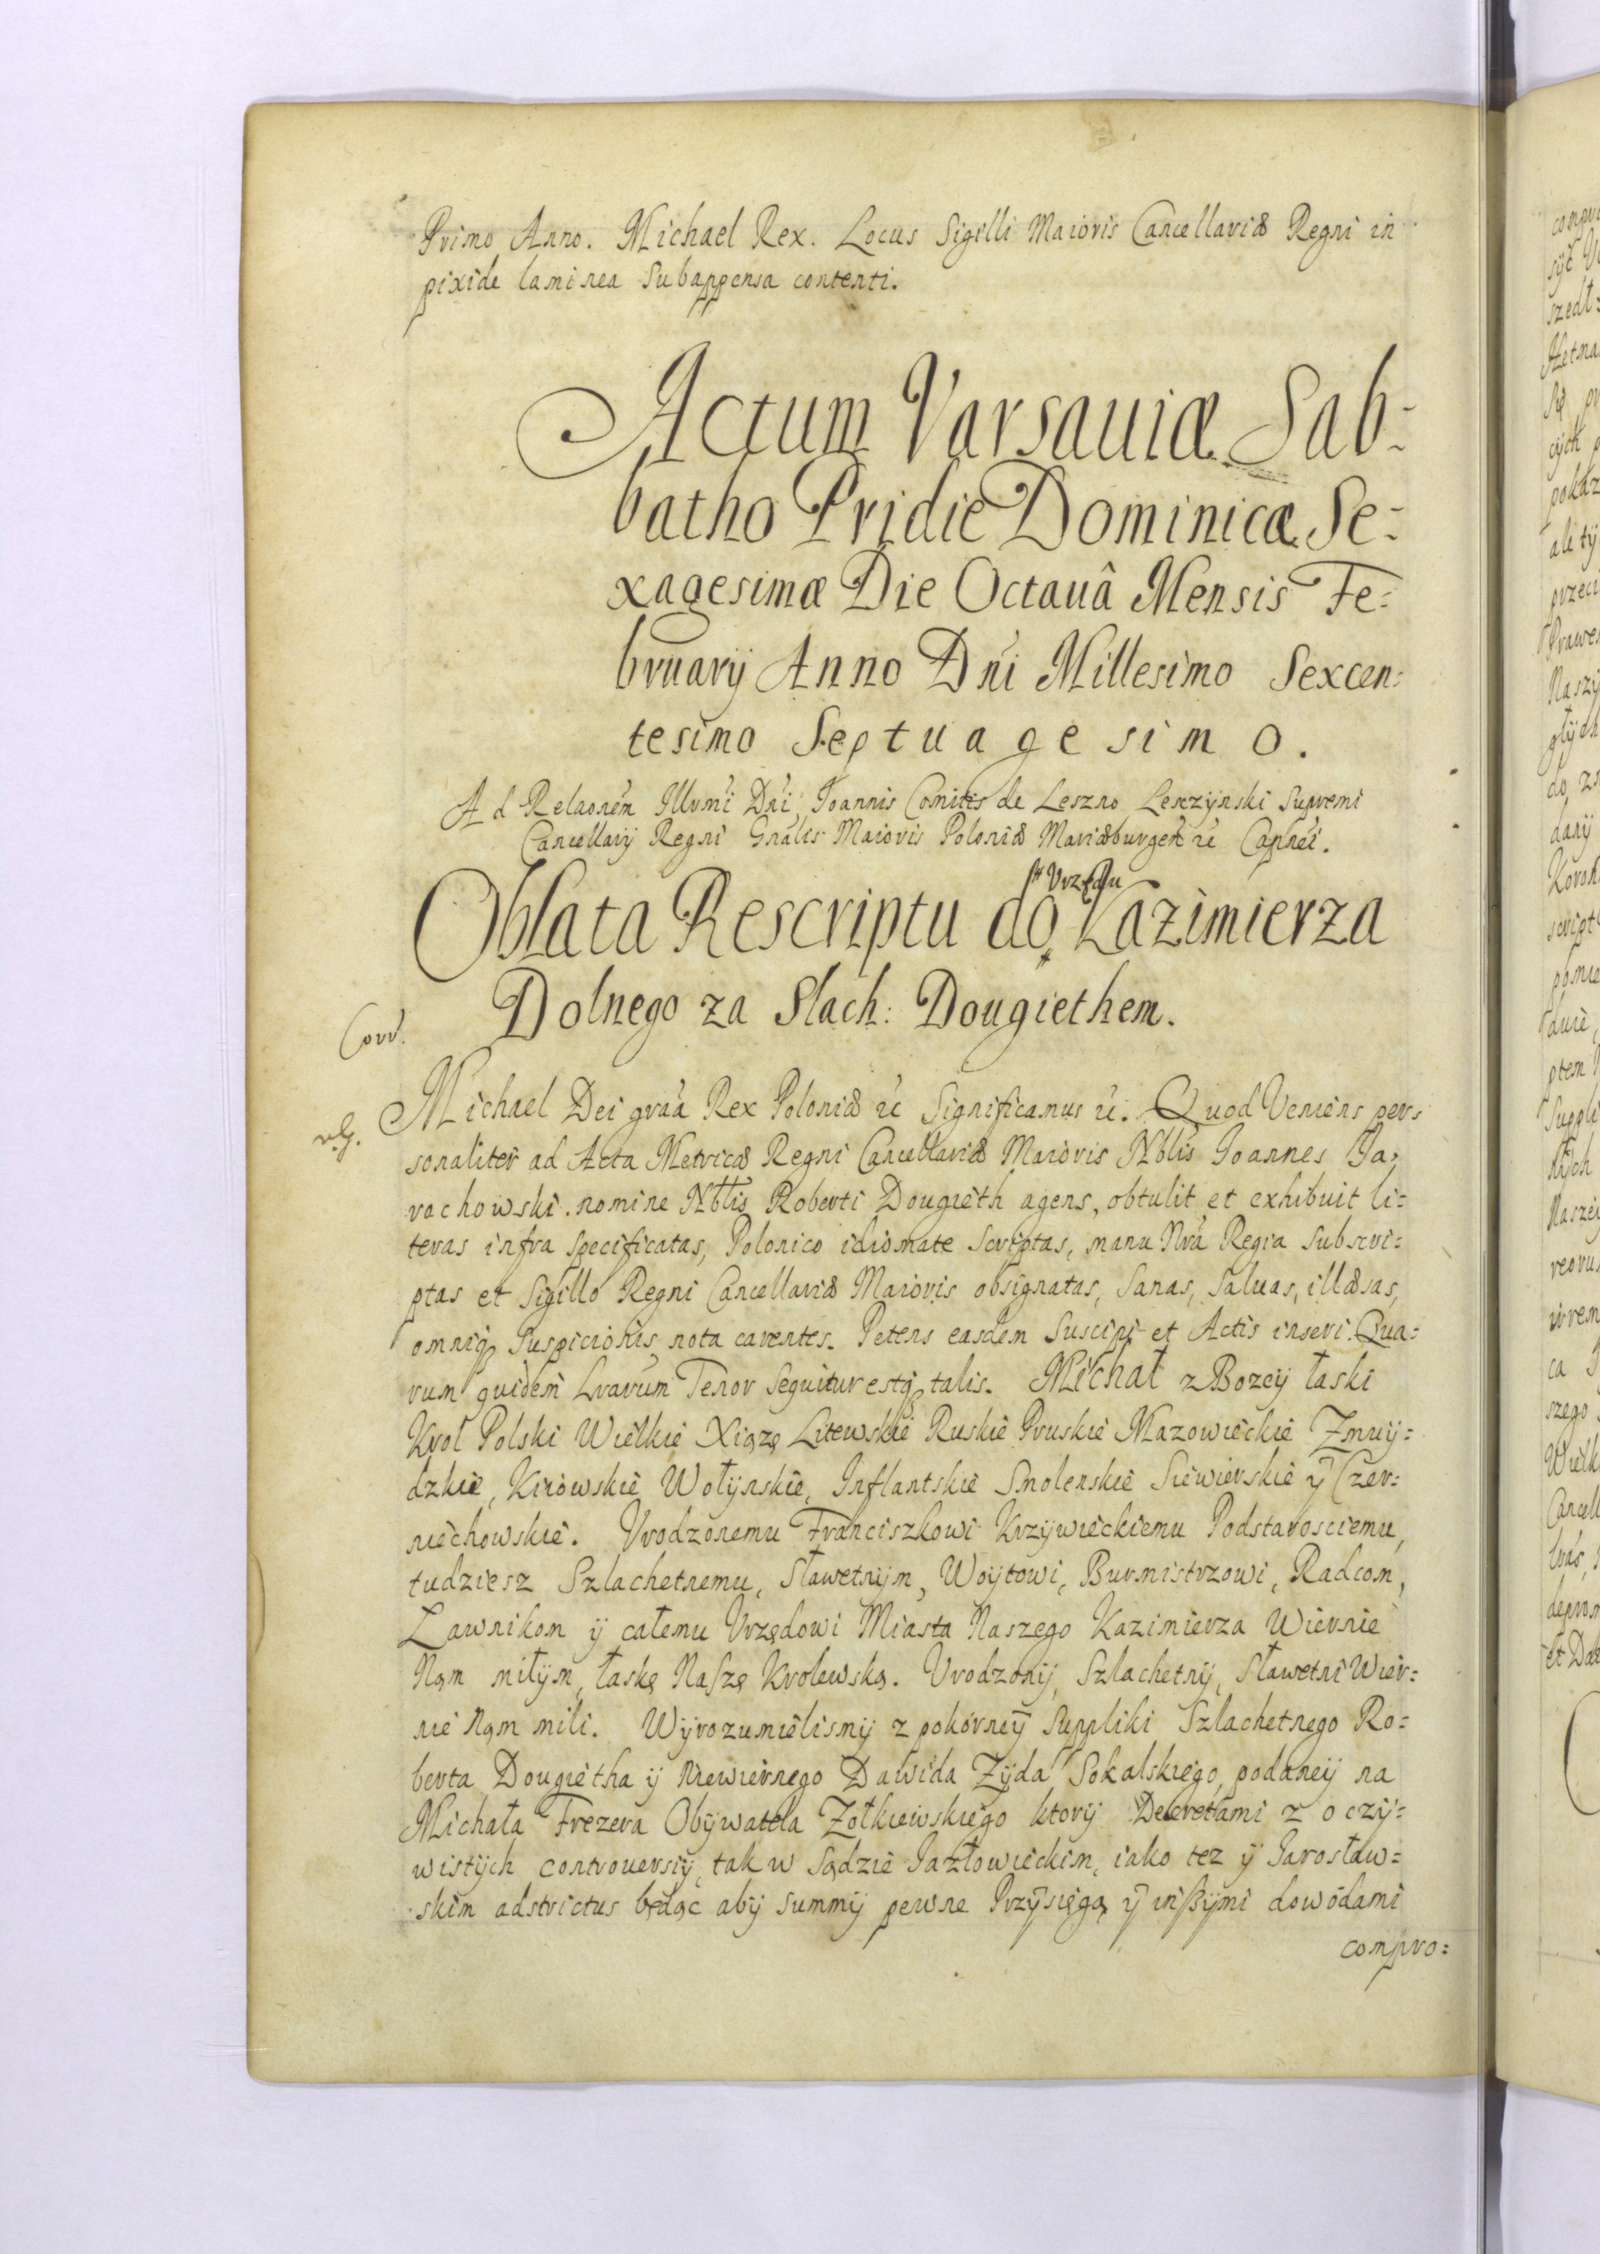 Primo Anno. Michael Rex. Locus Sigilli Maioris Cancellariæ Regni in
pixide laminea subappensa contenti.
Actum Varsauiæ Sab-
batho Pridie Dominicæ Se-
xagesimæ Die Octauâ Mensis Fe-
bruarij Anno Dni Millesimo Sexcen-
tesimo Septuagesimo.
Ad Relaonem Illvmi Dni Joannis Comitis de Leszno Leszzynski Supremi
Cancellarij Regni Gnalis Maioris Poloniæ Mariæburgen &c Capnei.
# Vrzędu
Oblata Rescriptu do # Kazimierza
Dolnego za Slach: Dougiethem.
Corr.
Michael Dei graa Rex Poloniæ &c Significamus &c. Quod Veniens per-
sonaliter ad Acta Metricæ Regni Cancellariæ Maioris Nblis Joannes Ja-
rachowski nomine Nblis Roberti Dougieth agens, obtulit et exhibuit li-
teras infra specificatas, Polonico idiomate scriptas, manu Nra Regia subscri-
ptas et Sigillo Regni Cancellariæ Maioris obsignatas, sanas, saluas, illæsas,
omniq suspicionis nota carentes. Petens easdem suscipi et Actis inseri. Qua-
rum quidem Lrarum Tenor sequitur estq talis. Michał z Bozey łaski
Krol Polski Wielkie Xiązę Litewskie Ruskie Pruskie Mazowieckie Zmuy-
dzkie, Kiiowskie, Wołynskie, Inflantskie Smolenskie Siewierskie y Czer-
niechowskie. Vrodzonemu Franciszkowi Krzywieckiemu Podstarosciemu,
tudziesz Szlachetnemu, Sławetnym, Woytowi, Burmistrzowi, Radcom,
Lawnikom y całemu Vrzędowi Miasta Naszego Kazimierza Wiernie
Nąm miłym, łaskę Naszę Krolewską. Vrodzony, Szlachetny, Sławetni Wier-
nie Nąm mili. Wyrozumielismy z pokorney Suppliki Szlachetnego Ro-
berta Dougietha y Niewiernego Dawida Zyda Sokalskiego, podaney na
Michała Frezera Obywatela Zołkiewskiego ktory Decretami z oczy-
wistych controuersiy, tak w Sądzie Jazłowieckim, iako tez y Jarosław-
skim adstrictus będąc aby summy pewne Przysięgą y inszymi dowodami
compro-